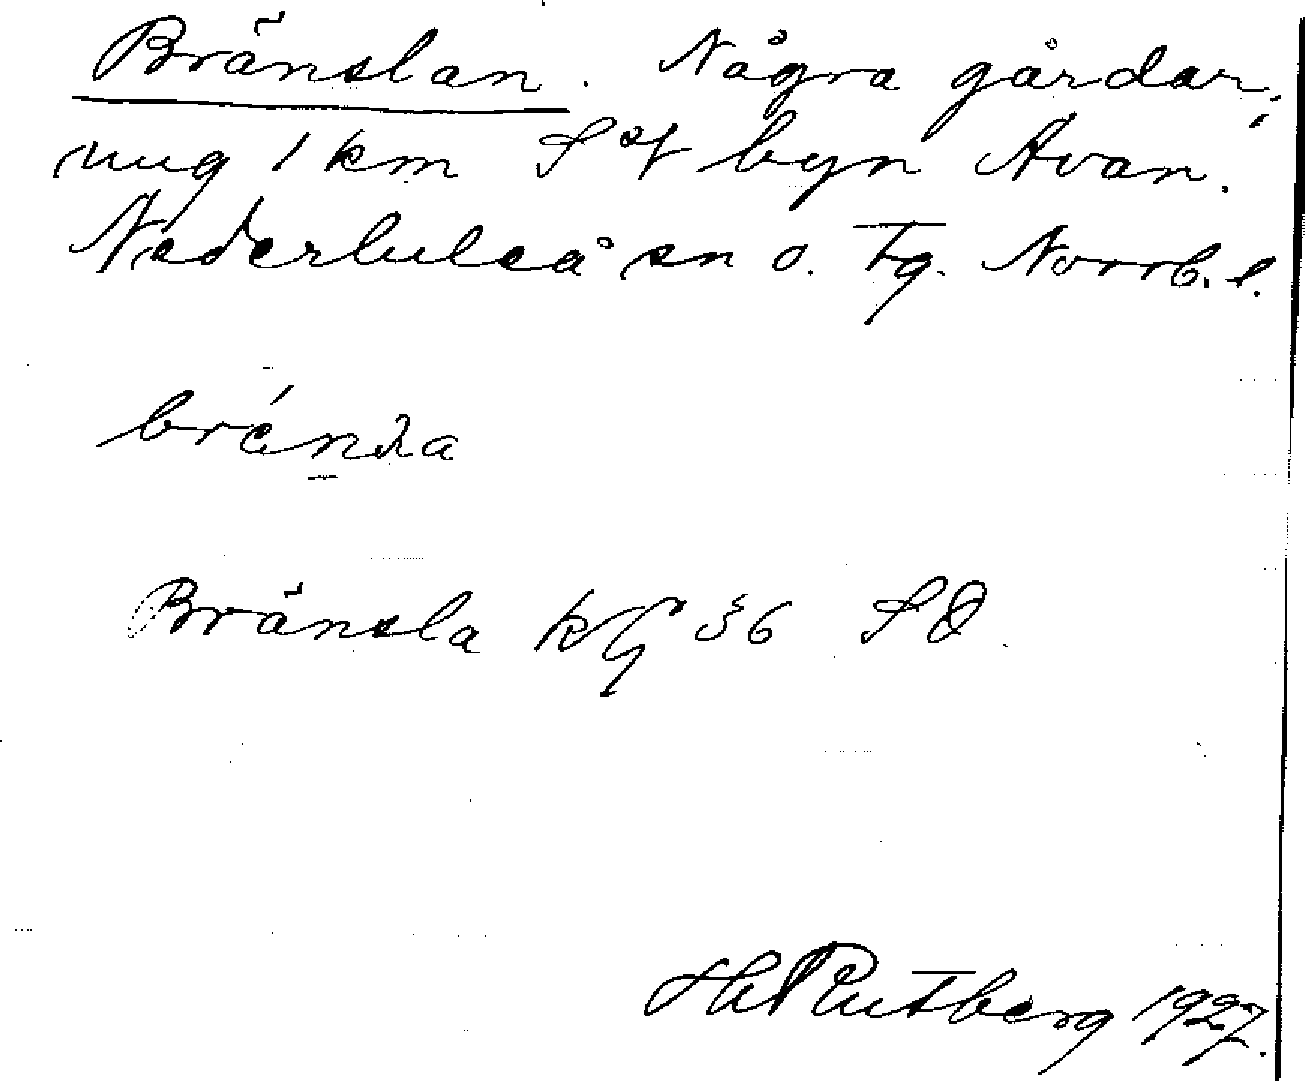 Bränslan. Några gårdar,
ung 1 km S of byn Avan.
Nederluleå sn o. tg. Norrb. l.
Bränsla kg 36 SO
Hl Rutberg 1927.